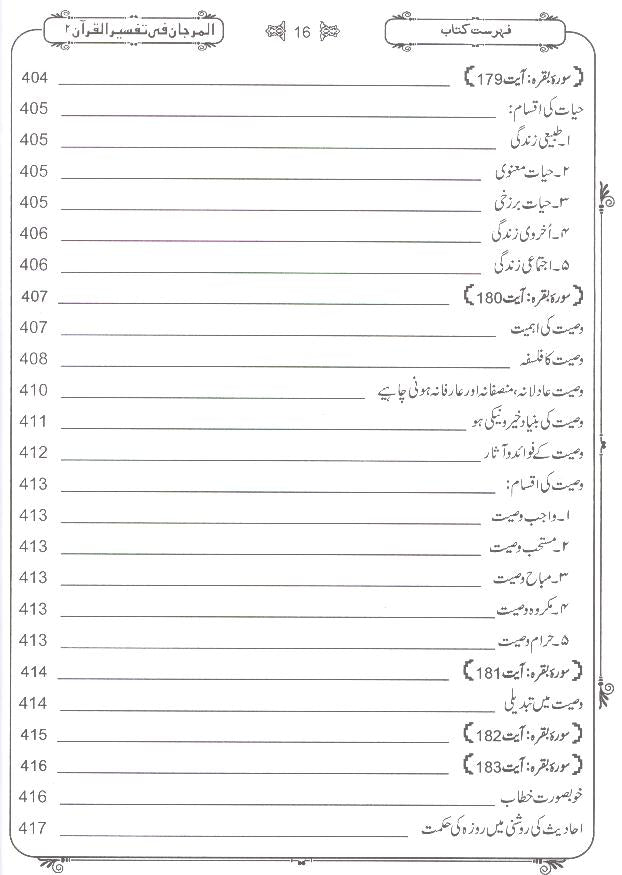 فہرست کتاب 16 المرجان فی تفسیر القرآن ۲
﴿سورۂ بقرہ: آیت 179﴾ 404
حیات کی اقسام: 405
۱۔ طبیعی زندگی 405
۲۔ حیات معنوی 405
۳۔ حیات برزخی 405
۴۔ اُخروی زندگی 406
۵۔ اجتماعی زندگی 406
﴿سورۂ بقرہ: آیت 180﴾ 407
وصیت کی اہمیت 407
وصیت کا فلسفہ 408
وصیت عادلانہ، منصفانہ اور عارفانہ ہونی چاہیے 410
وصیت کی بنیاد خیر و نیکی ہو 411
وصیت کے فوائد و آثار 412
وصیت کی اقسام: 413
۱۔ واجب وصیت 413
۲۔ مستحب وصیت 413
۳۔ مباح وصیت 413
۴۔ مکروہ وصیت 413
۵۔ حرام وصیت 413
﴿سورۂ بقرہ: آیت 181﴾ 414
وصیت میں تبدیلی 414
﴿سورۂ بقرہ: آیت 182﴾ 415
﴿سورۂ بقرہ: آیت 183﴾ 416
خوبصورت خطاب 416
احادیث کی روشنی میں روزہ کی حکمت 417